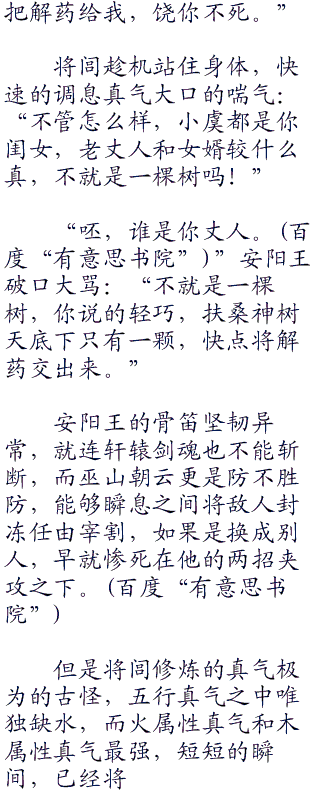 把解药给我，饶你不死。”
将闾趁机站住身体，快
速的调息真气大口的喘气：
“不管怎么样，小虞都是你
闺女，老丈人和女婿较什么
真，不就是一棵树吗！”
“呸，谁是你丈人。(百
度“有意思书院”)”安阳王
破口大骂：“不就是一棵
树，你说的轻巧，扶桑神树
天底下只有一颗，快点将解
药交出来。”
安阳王的骨笛坚韧异
常，就连轩辕剑魂也不能斩
断，而巫山朝云更是防不胜
防，能够瞬息之间将敌人封
冻任由宰割，如果是换成别
人，早就惨死在他的两招夹
攻之下。(百度“有意思书
院”)
但是将闾修炼的真气极
为的古怪，五行真气之中唯
独缺水，而火属性真气和木
属性真气最强，短短的瞬
间，已经将